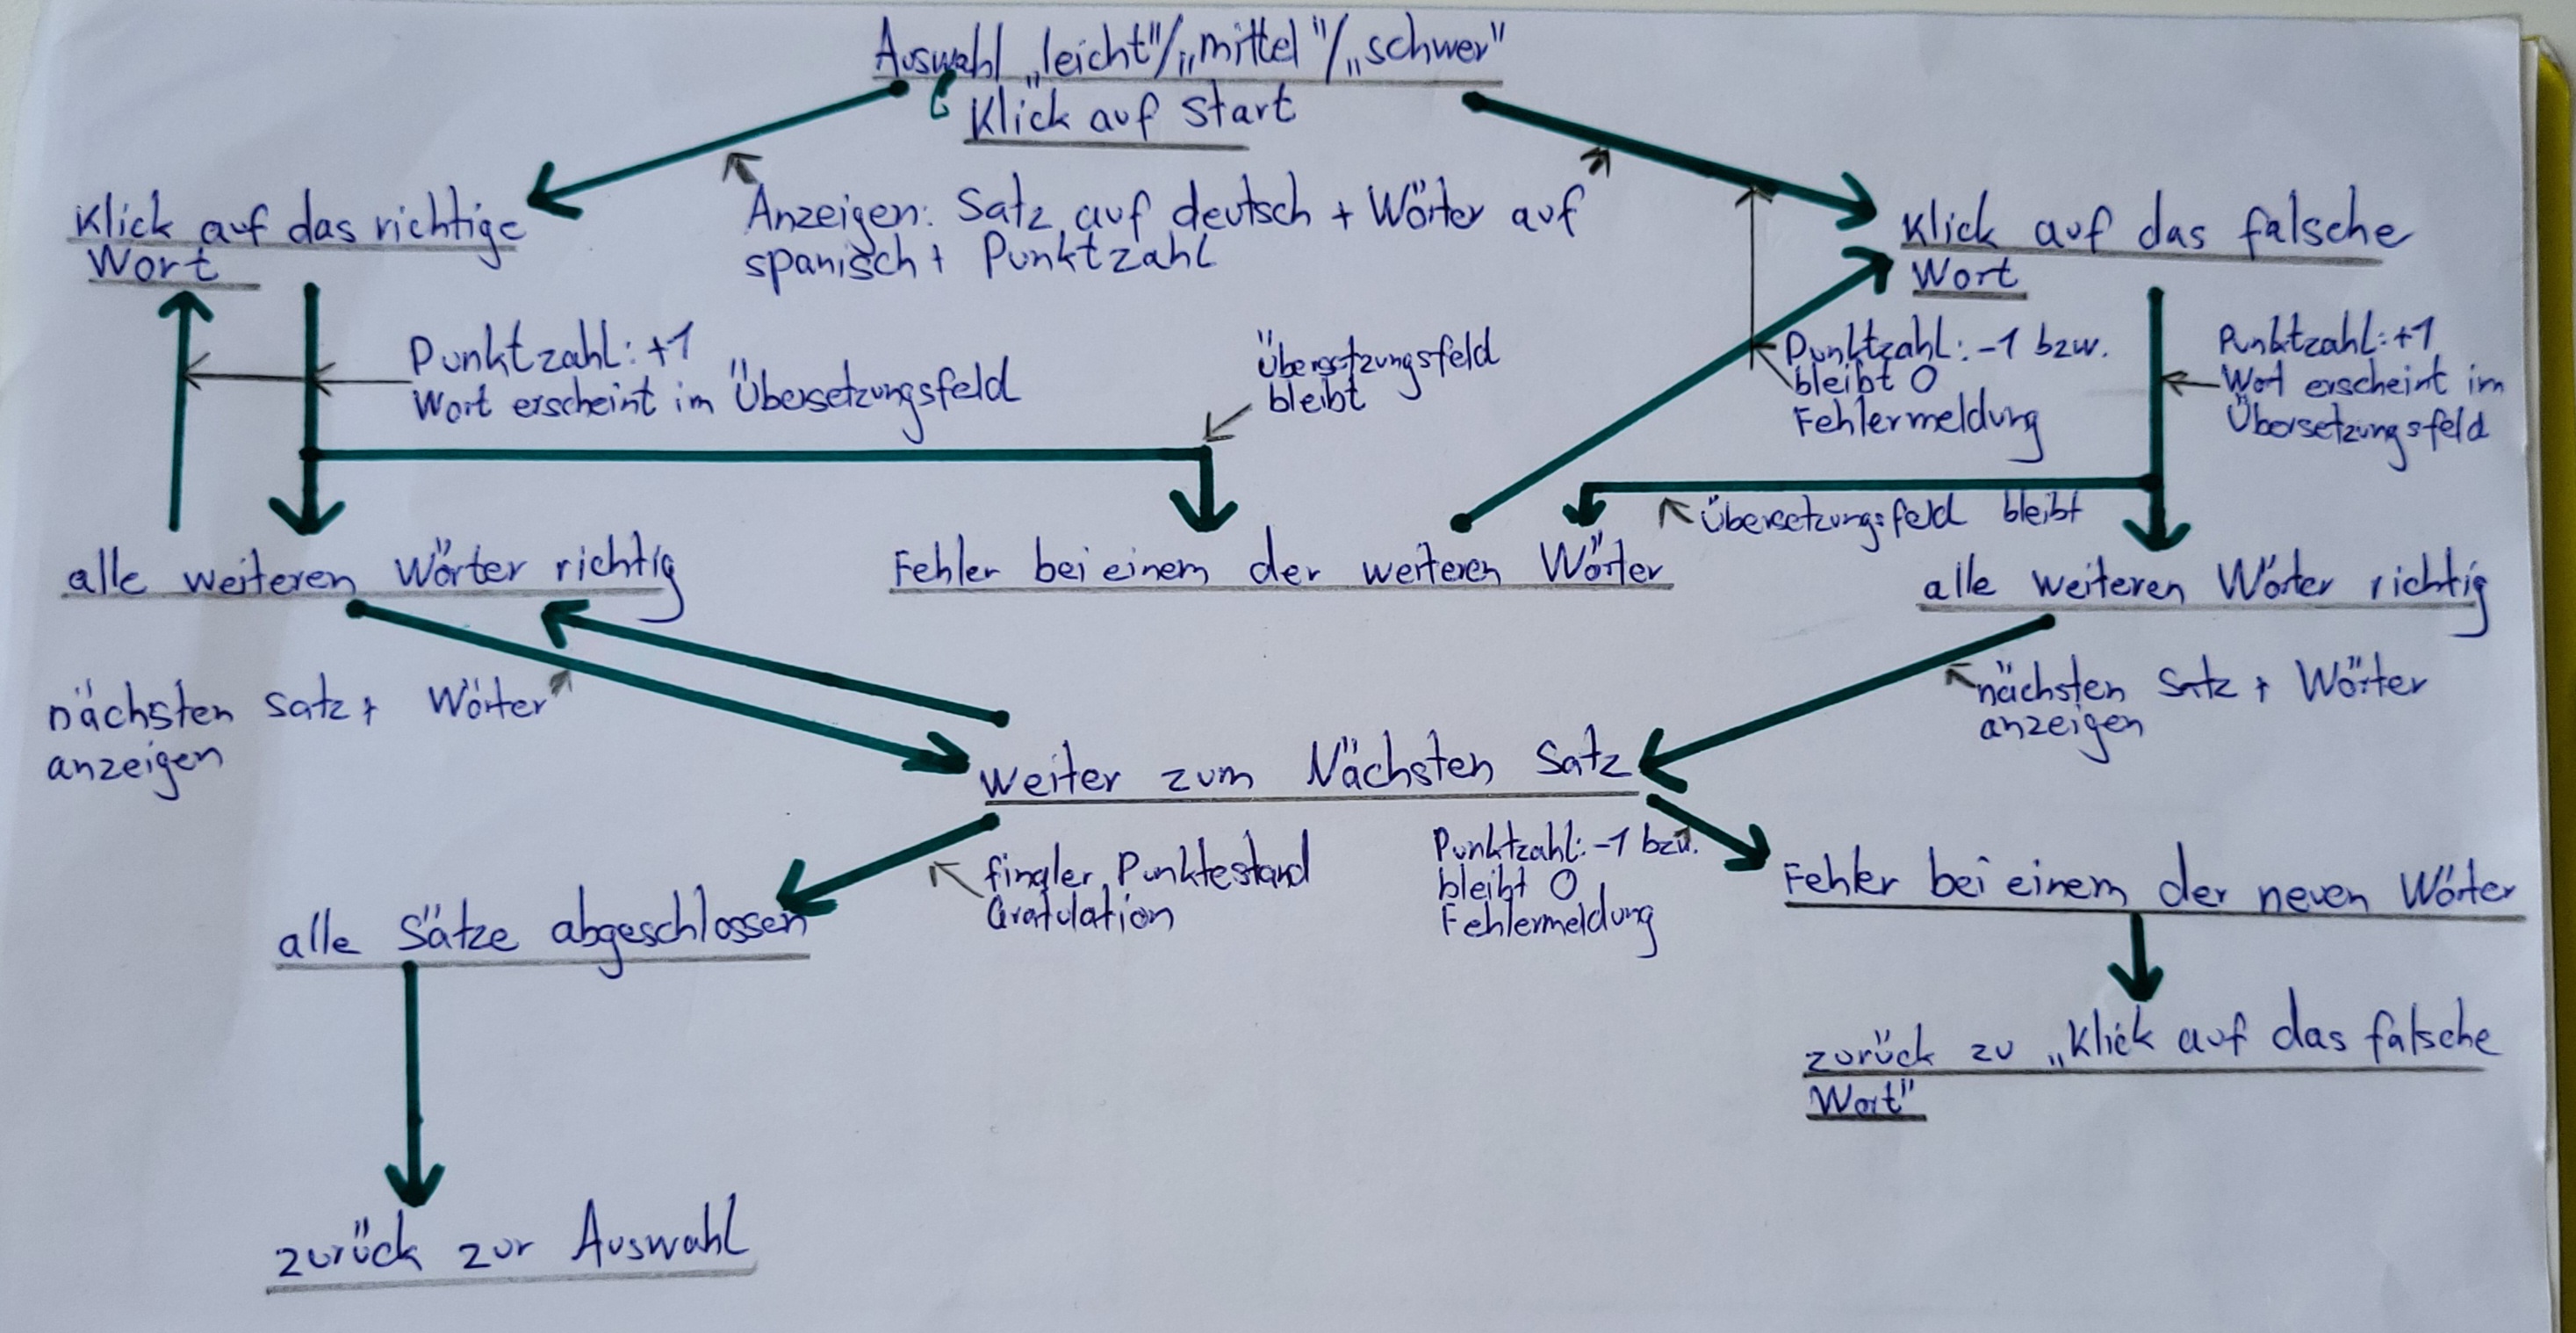 Auswahl „leicht"/„mittel"/„schwer"
Klick auf Start
Klick auf das richtige
Wort
Anzeigen: Satz auf deutsch + Wörter auf
spanisch + Punktzahl
Klick auf das falsche
Wort
Punktzahl: +1
Wort erscheint im Übersetzungsfeld
Übersetzungsfeld
bleibt
Punktzahl: -1 bzw.
bleibt 0
Fehlermeldung
Punktzahl: +1
Wort erscheint im
Übersetzungsfeld
Übersetzungsfeld bleibt
alle weiteren Wörter richtig
Fehler bei einem der weiteren Wörter
alle weiteren Wörter richtig
nächsten Satz + Wörter
anzeigen
nächsten Satz + Wörter
anzeigen
weiter zum Nächsten Satz
finaler Punktestand
Gratulation
Punktzahl: -1 bzw.
bleibt 0
Fehlermeldung
Fehler bei einem der neuen Wörter
alle Sätze abgeschlossen
zurück zu „Klick auf das falsche
Wort"
zurück zur Auswahl